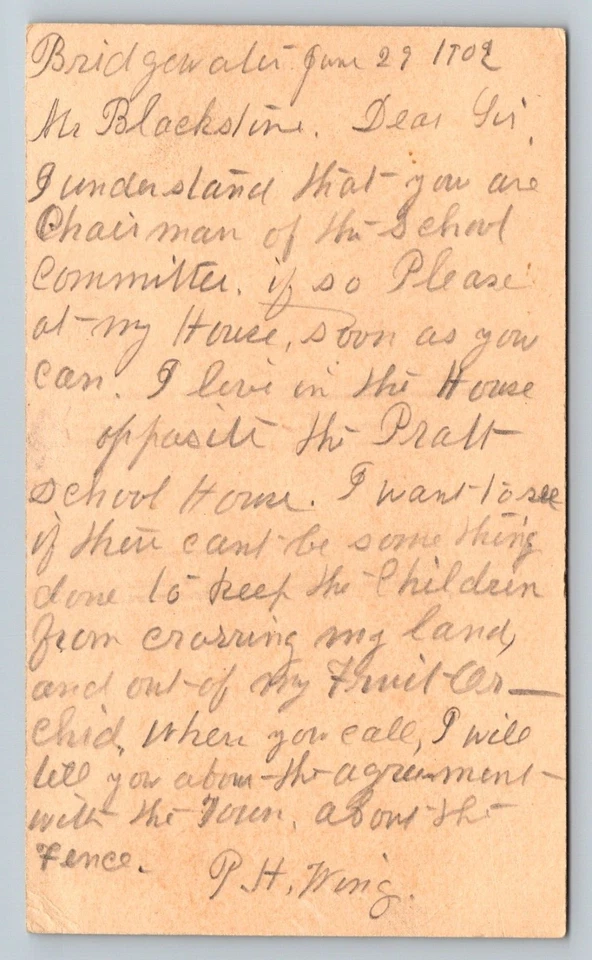 Bridgewater June 29 1902
Mr Blackstone. Dear Sir,
I understand that you are
Chairman of the School
Committee. if so Please
at my House, soon as you
can. I live in the House
opposite the Pratt
School House. I want to see
if there cant be some thing
done to keep the Children
from crossing my land,
and out of my Fruit Or—
chid, When you call, I will
tell you about the agreement
with the Town, about the
Fence.
P. H. Wing.